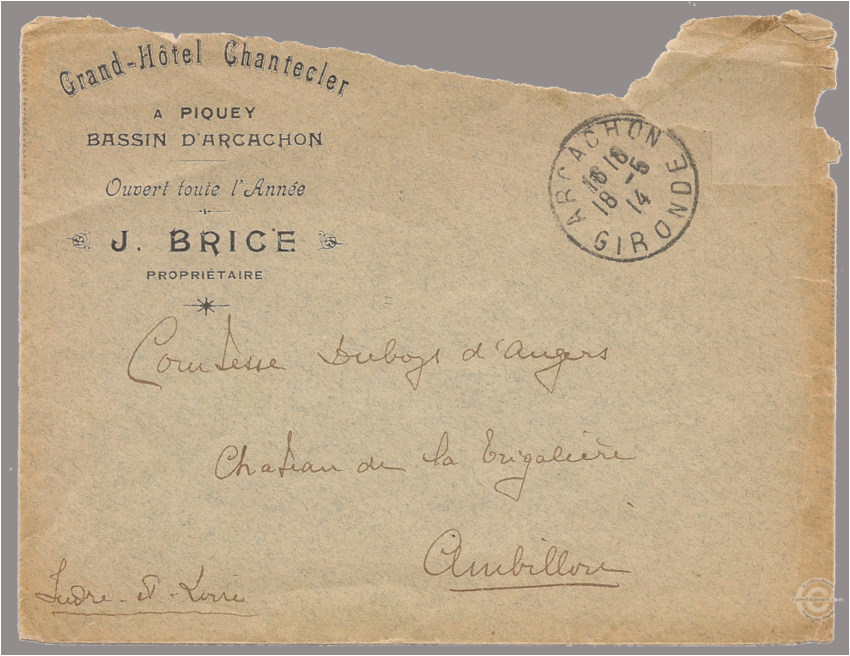 Grand-Hôtel Chantecler
A PIQUEY
BASSIN D'ARCACHON
Ouvert toute l'Année
J. BRICE
PROPRIÉTAIRE
ARCACHON
18 18
18 -5
14
GIRONDE
Comtesse Duboys d'Angers
Chateau de la Trigalière
Ambillou
Indre-et-Loire